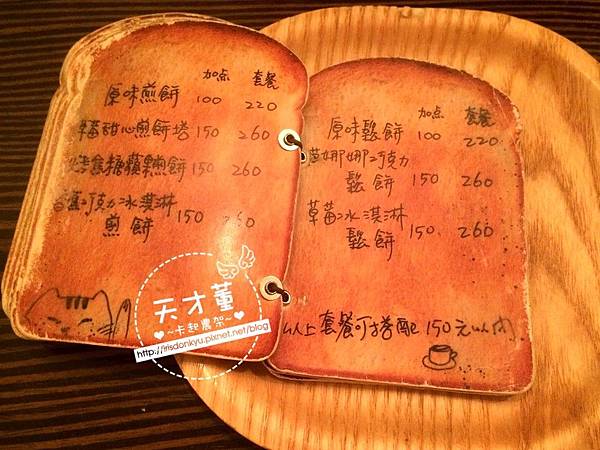 加点 套餐
原味煎餅 100 220
草莓甜心煎餅塔 150 260
焦糖蘋果煎餅 150 260
香蕉巧克力冰淇淋
煎餅 150 260
加点 套餐
原味鬆餅 100 220
芭娜娜巧克力
鬆餅 150 260
草莓冰淇淋
鬆餅 150 260
以上套餐可搭配150元以內
天才董
~卡起農架~
http://irisdonkyu.pixnet.net/blog